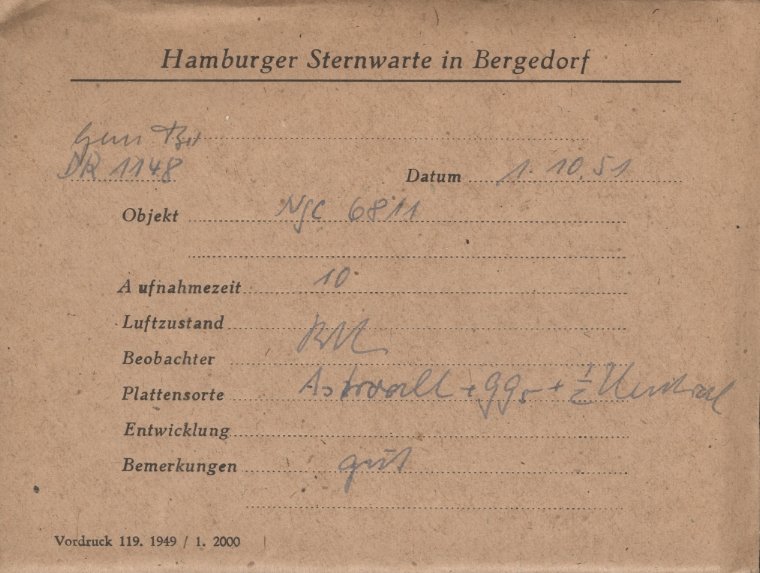 Hamburger Sternwarte in Bergedorf
DR 1148
Datum 1. 10. 51
Objekt NGC 6811
Aufnahmezeit 10
Luftzustand
Beobachter
Plattensorte + gg5 + 1/2
Entwicklung
Bemerkungen gut
Vordruck 119. 1949 / 1. 2000